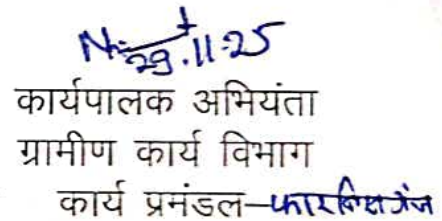 29.11.25
कार्यपालक अभियंता
ग्रामीण कार्य विभाग
कार्य प्रमंडल–फारबिसगंज